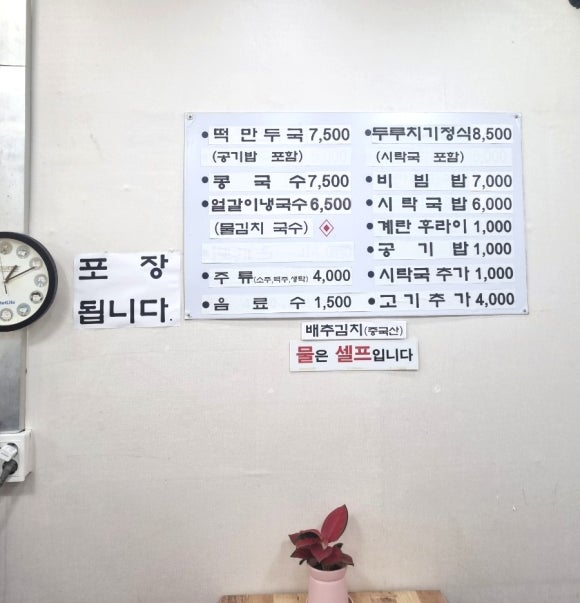 떡 만 두 국 7,500
(공기밥 포함)
콩 국 수 7,500
얼갈이냉국수 6,500
(물김치 국수)
주 류 (소주,맥주,생탁) 4,000
음 료 수 1,500
두루치기정식 8,500
(시락국 포함)
비 빔 밥 7,000
시 락 국 밥 6,000
계란 후라이 1,000
공 기 밥 1,000
시락국 추가 1,000
고 기 추 가 4,000
포 장
됩니다.
배추김치(중국산)
물은 셀프입니다